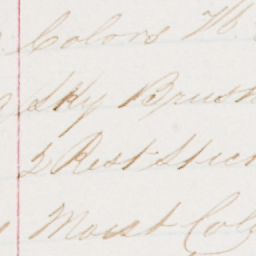 Colors W.
Sky Brush
2 Rest Stick
Moist Col